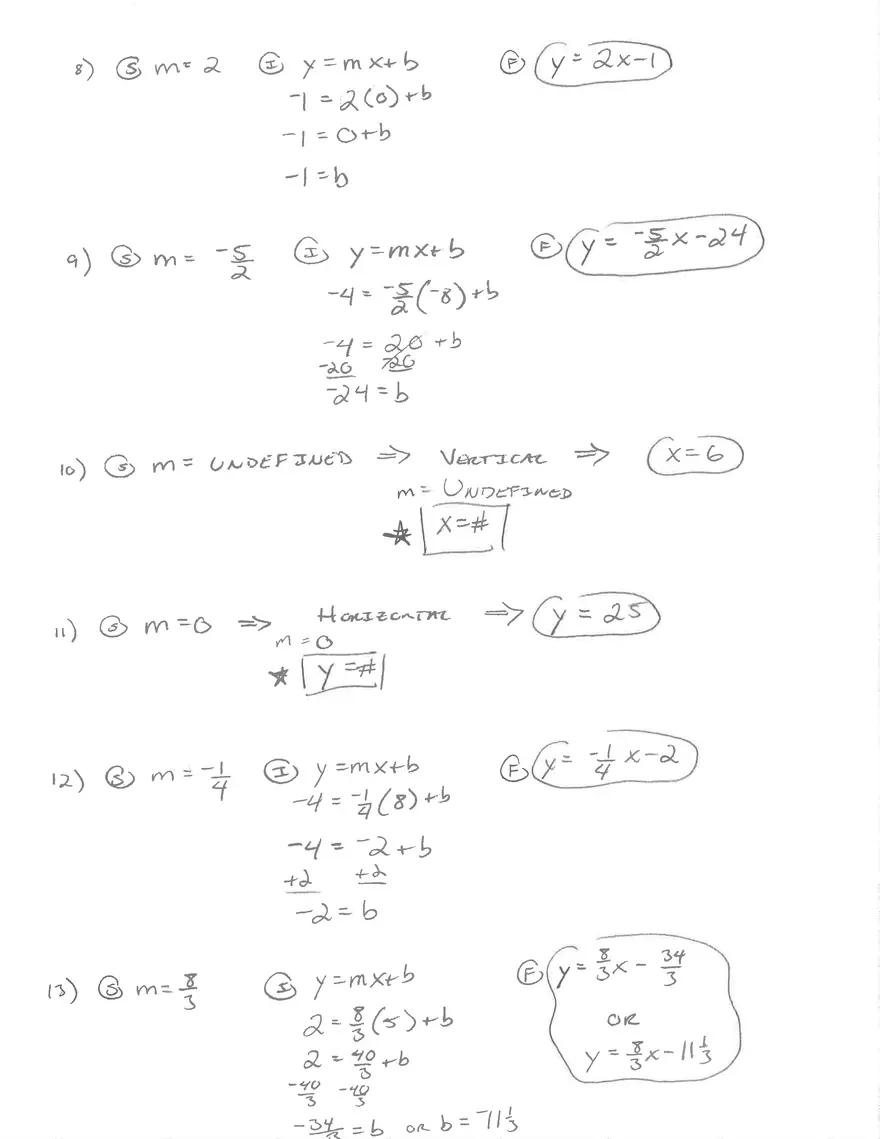 8) Ⓢ m = 2 Ⓘ y = mx + b Ⓕ y = 2x - 1
-1 = 2(0) + b
-1 = 0 + b
-1 = b
9) Ⓢ m = -5/2 Ⓘ y = mx + b Ⓕ y = -5/2 x - 24
-4 = -5/2 (-8) + b
-4 = 20 + b
-20 -20
-24 = b
10) Ⓢ m = UNDEFINED ⇒ VERTICAL ⇒ x = 6
m = UNDEFINED
★ x = #
11) Ⓢ m = 0 ⇒ HORIZONTAL ⇒ y = 25
m = 0
★ y = #
12) Ⓢ m = -1/4 Ⓘ y = mx + b Ⓕ y = -1/4 x - 2
-4 = -1/4 (8) + b
-4 = -2 + b
+2 +2
-2 = b
13) Ⓢ m = 8/3 Ⓘ y = mx + b Ⓕ y = 8/3 x - 34/3
2 = 8/3 (5) + b OR
2 = 40/3 + b y = 8/3 x - 11 1/3
-40/3 -40/3
-34/3 = b OR b = -11 1/3